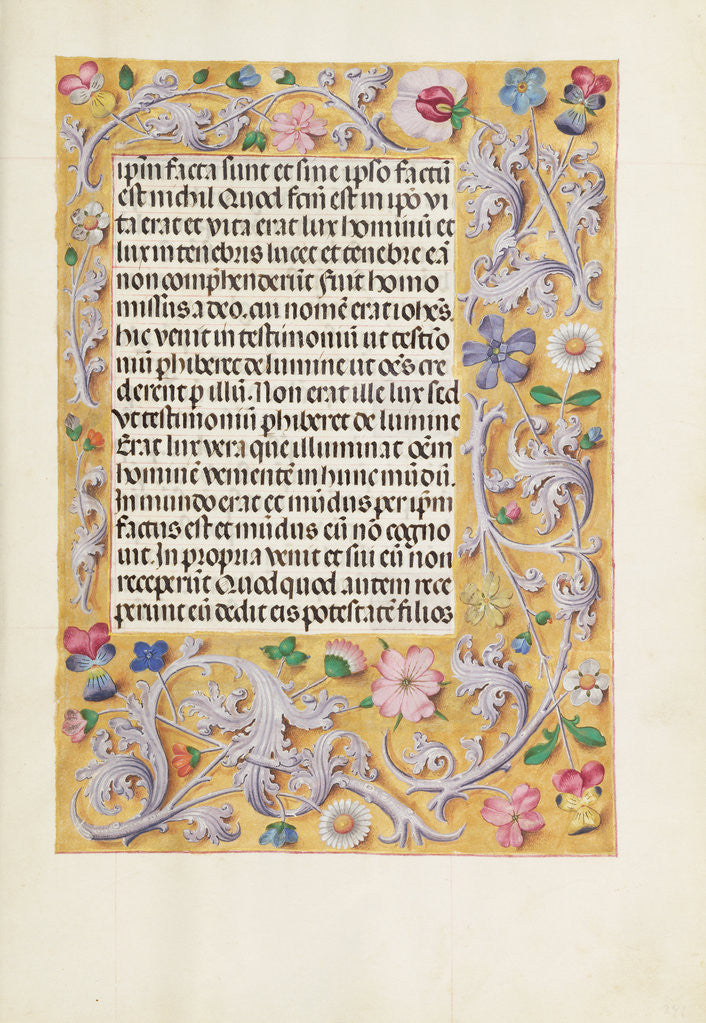 ip̄m facta sunt et sine ipso factū
est nichil Quod fcm̄ est in ip̄o vi
ta erat et vita erat lux hominū et
lux in tenebris lucet et tenebre eā
non comp̄henderūt Fuit homo
missus a deo. cui nomē erat ioh̄es.
hic venit in testimoniū ut testīo
niū phiberet de lumine ut oēs cre
derent p illū. Non erat ille lux sed
vt testimoniū phiberet de lumine
Erat lux vera que illuminat oēm
hominē venientē in hunc mūdū.
In mundo erat et mūdus per ip̄m
factus est et mūdus eū nō cogno
uit. In propria venit et sui eū non
receperūt Quod quod autem rece
perunt eū dedit eis potestatē filios